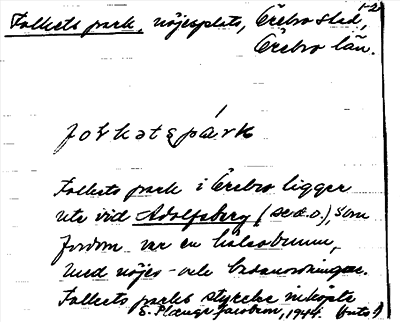 1-2
Folkets park, nöjesplats, Örebro stad,
Örebro län.
folkətspárk
Folkets park i Örebro ligger
ute vid Adolfsberg (se d.o.), som
fordom var en hälsobrunn,
med nöjes- och badanordningar.
Folkets parks styrelse inköpte
E. Plænge Jacobson, 1944. (verts.)